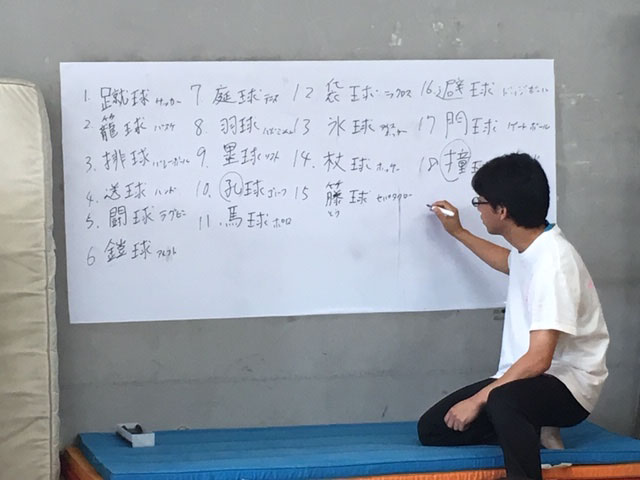 1. 蹴球 サッカー
2. 籠球 バスケ
3. 排球 バレーボール
4. 送球 ハンド
5. 闘球 ラグビー
6 鎧球 アメフト
7. 庭球 テニス
8. 羽球
9. 塁球 ソフト
10. 孔球 ゴルフ
11. 馬球 ポロ
12 袋球 ラクロス
13 氷球
14. 杖球 ホッケー
15 籐球 セパタクロー
とう
16. 避球 ドッジボール
17. 門球 ゲートボール
18 撞球